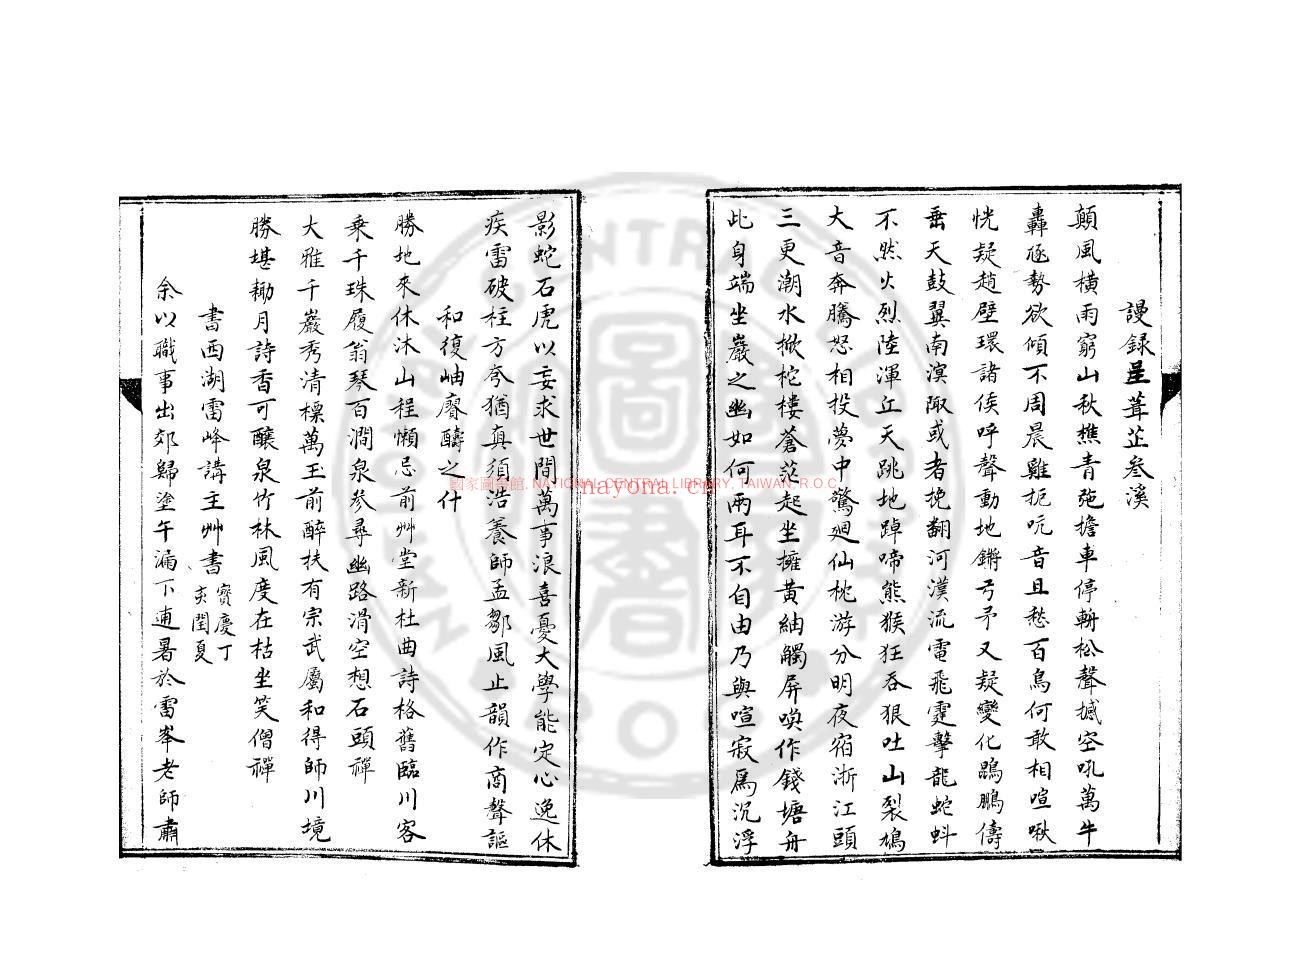 謾録呈葺芷叁溪
顛風横雨窮山秋樵青弛擔車停輈松聲撼空吼萬牛
轟豗勢欲傾不周晨雞扼吭音且愁百鳥何敢相喧啾
恍疑趙壁環諸侯呼聲動地鏘弓矛又疑變化鵾鵬儔
垂天鼓翼南溟陬或者挽翻河漢流電飛霆擊龍蛇蚪
不然火烈陸渾丘天跳地踔啼熊猴狂吞狠吐山裂鳩
大音奔騰怒相投夢中驚廻仙枕游分明夜宿浙江頭
三更潮水掀柁樓蒼茫起坐擁黃紬觸屏喚作錢塘舟
此身端坐巖之幽如何兩耳不自由乃與喧寂爲沉浮
影蛇石虎以妄求世間萬事浪喜憂大學能定心逸休
疾雷破柱方夸猶真須浩養師孟鄒風止韻作商聲謳
和復岫賡疇之什
勝地來休沐山程懶忌前艸堂新杜曲詩格舊臨川客
乘千珠履翁琴百澗泉參尋幽路滑空想石頭禪
大雅千巖秀清標萬玉前醉扶有宗武屬和得師川境
勝堪耡月詩香可釀泉竹林風度在枯坐笑僧禪
書西湖雷峰講主艸書 寶慶丁亥閏夏
余以職事出郊歸塗午漏下逭暑於雷峯老師肅
國家圖書館, NATIONAL CENTRAL LIBRARY, TAIWAN, R.O.C
nayona.cn